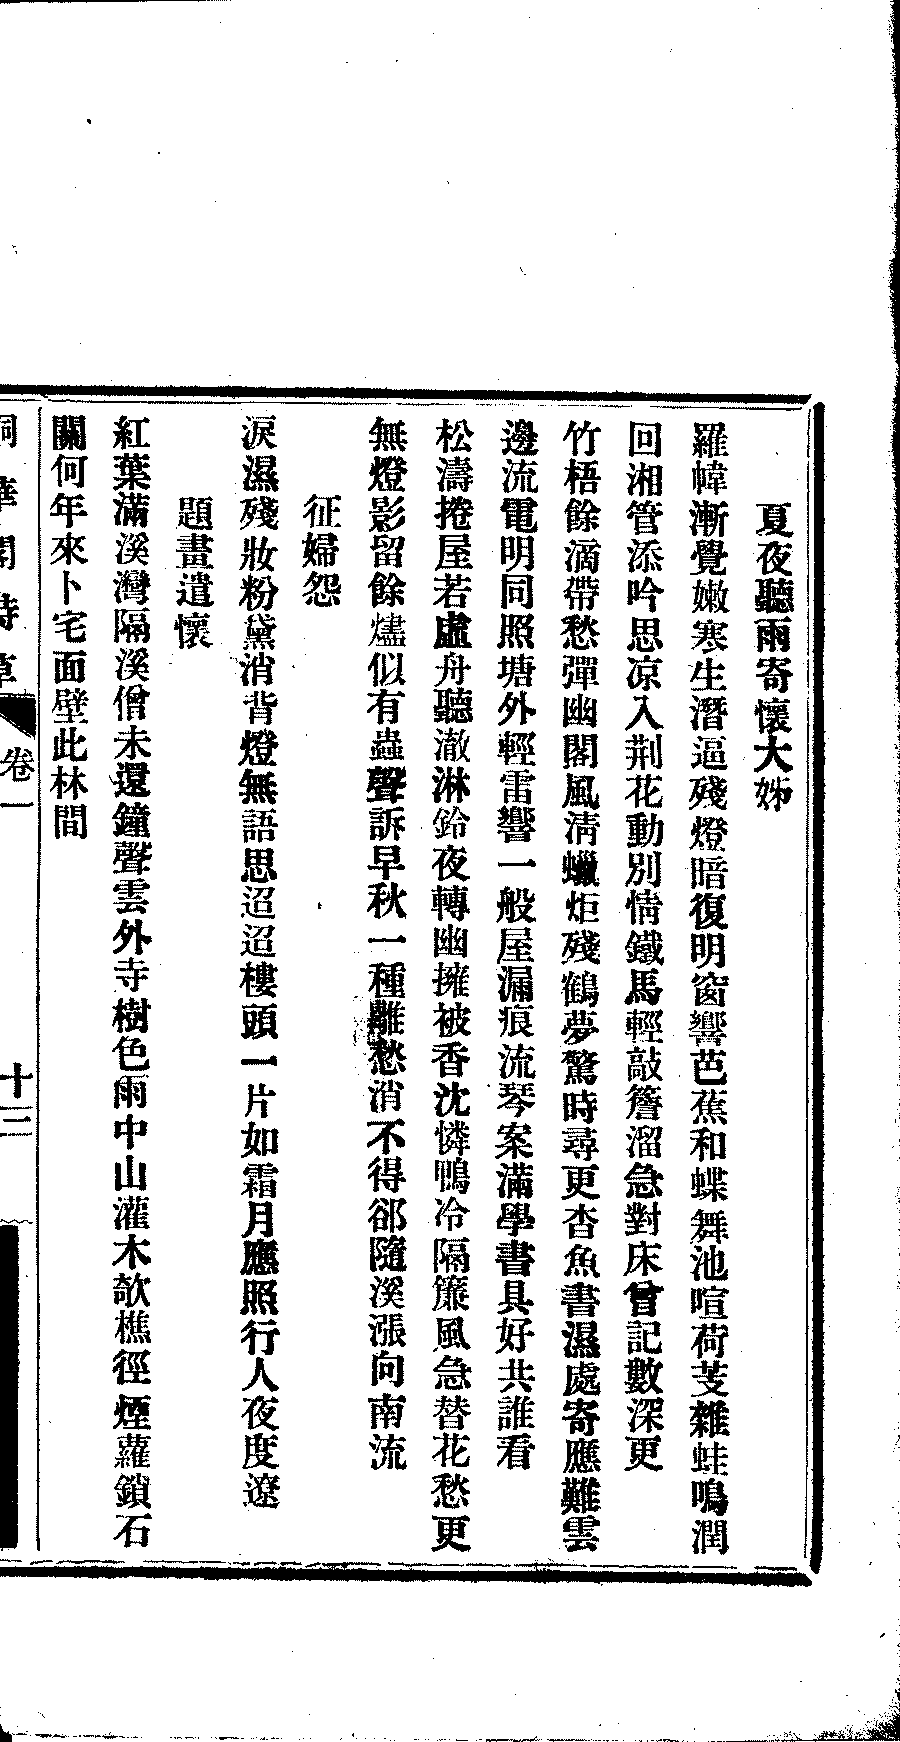 夏夜聽雨寄懷大姊
羅幃漸覺嫩寒生潛逼殘燈暗復明窗響芭蕉和蝶舞池喧荷芰雜蛙鳴潤
回湘管添吟思凉入荆花動別情鐵馬輕敲簷溜急對床曾記數深更
竹梧餘滴帶愁彈幽閣風淸蠟炬殘鶴夢驚時尋更杳魚書濕處寄應難雲
邊流電明同照塘外輕雷響一般屋漏痕流琴案滿學書具好共誰看
松濤捲屋若虛舟聽澈淋鈴夜轉幽擁被香沈憐鴨冷隔簾風急替花愁更
無燈影留餘燼似有蟲聲訴早秋一種離愁消不得郤隨溪漲向南流
征婦怨
淚濕殘妝粉黛消背燈無語思迢迢樓頭一片如霜月應照行人夜度遼
題畫遣懷
紅葉滿溪灣隔溪僧未還鐘聲雲外寺樹色雨中山灌木欹樵徑煙蘿鎖石
關何年來卜宅面壁此林間
華閣詩草 卷一 十二